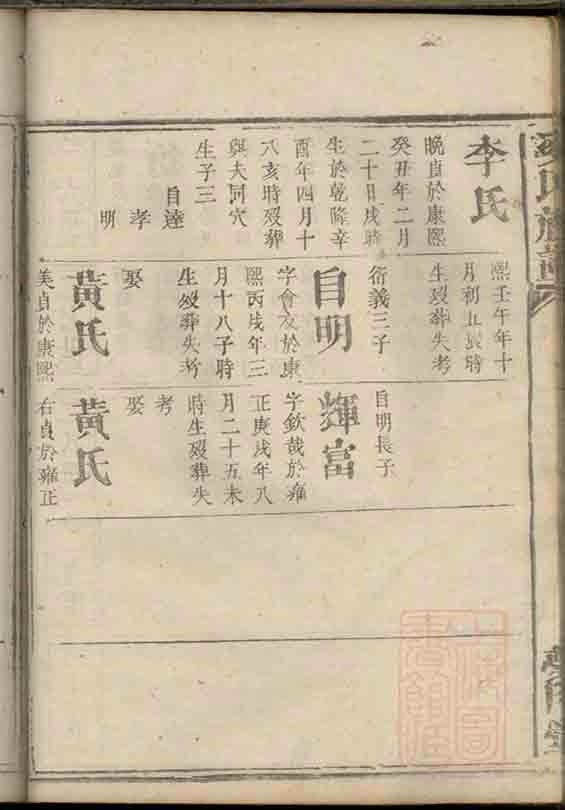 李氏
晚貞於康熙
癸丑年二月
二十日戌時
生於乾隆辛
酉年四月十
八亥時歿葬
與夫同穴
生子三
自達
孝
明
熙壬午年十
月初五辰時
生歿葬失考
衍義三子
自明
字會友於康
熙丙戌年三
月十八子時
生歿葬失考
娶
黃氏
美貞於康熙
自明長子
輝富
字欽哉於雍
正庚戌年八
月二十五未
時生歿葬失
考
娶
黃氏
右貞於雍正